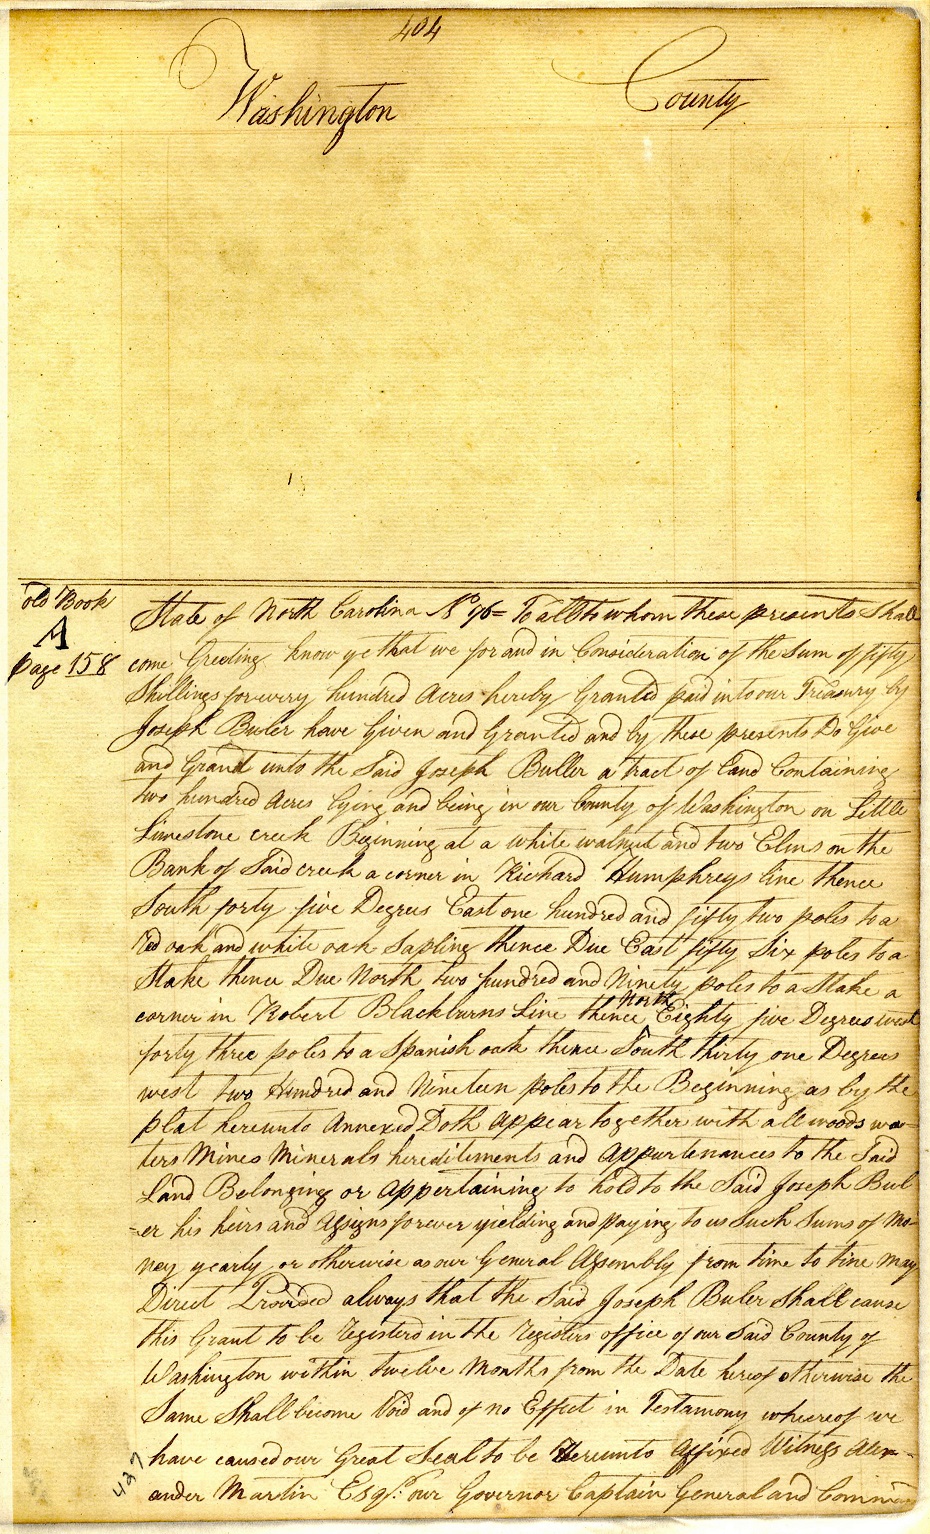 404
Washington County
old Book
A
Page 158
State of North Carolina No 96= To all to whom these presents Shall
come Greeting know ye that we for and in Consideration of the Sum of fifty
Shillings for every hundred Acres hereby Granted paid into our Treasury by
Joseph Buler have Given and Granted and by these presents Do Give
and Grant unto the Said Joseph Buller a tract of Land Containing
two hundred Acres lying and being in our County of Washington on Little
Limestone creek Beginning at a white walnut and two Elms on the
Bank of Said creek a corner in Richard Humphreys line thence
South forty five Degrees East one hundred and fifty two poles to a
Red oak and white oak Sapling thence Due East fifty Six poles to a
Stake thence Due North two hundred and Ninety poles to a Stake a
corner in Robert Blackburns Line thence North Eighty five Degrees west
forty three poles to a Spanish oak thence South thirty one Degrees
west two Hundred and Nineteen poles to the Beginning as by the
plat hereunto Annexed Doth Appear together with all woods wa-
ters Mines Minerals hereditements and Appurtenances to the Said
Land Belonging or Appertaining to hold to the Said Joseph Bul
-er his heirs and Assigns forever yielding and paying to us Such Sums of Mo-
ney yearly or otherwise as our General Assembly from time to time may
Direct Provided always that the Said Joseph Buler Shall cause
this Grant to be Registerd in the Registers office of our Said County of
Washington within twelve Months from the Date hereof otherwise the
Same Shall become Void and of no Effect in Testamony whereof we
have caused our Great Seal to be Hereunto Affixed Witness Alex-
ander Martin Esqr. our Governor Captain General and Comman
427